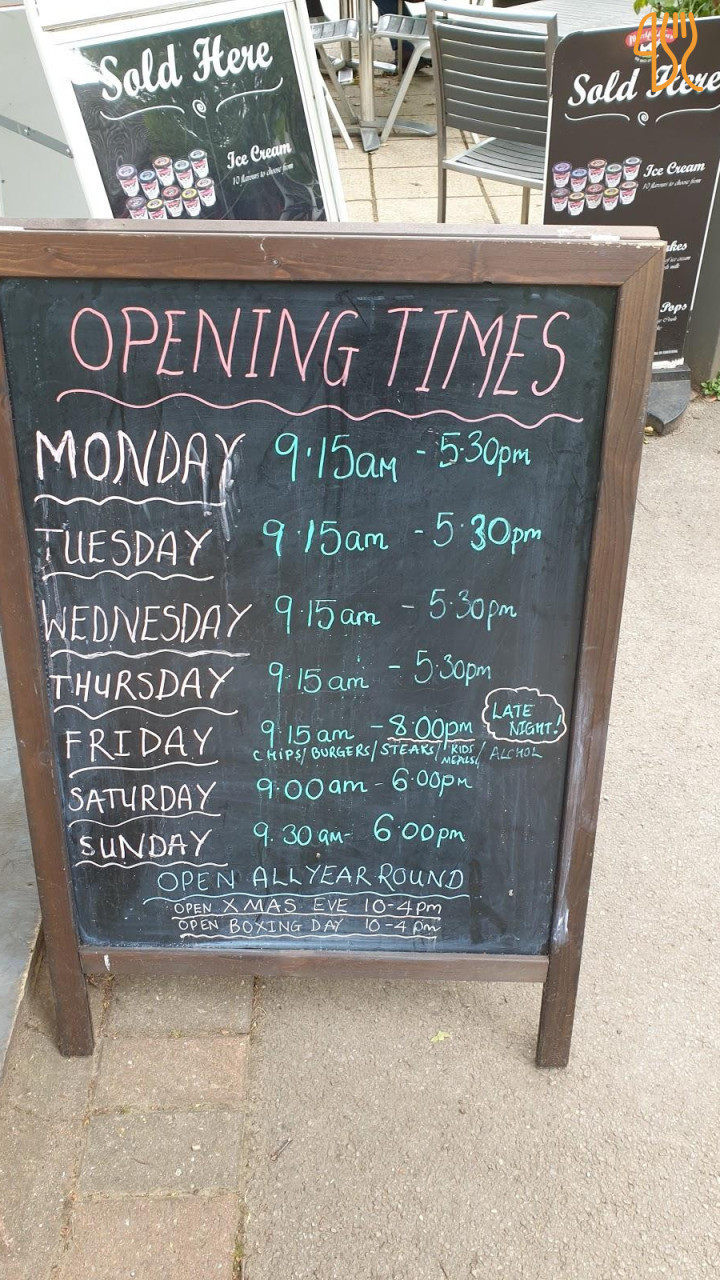 Sold Here
Ice Cream
10 flavours to choose from
Sold Here
Ice Cream
10 flavours to choose from
OPENING TIMES
MONDAY 9·15am - 5·30pm
TUESDAY 9·15am - 5·30pm
WEDNESDAY 9·15am - 5·30pm
THURSDAY 9·15am - 5·30pm
FRIDAY 9·15am - 8·00pm LATE NIGHT!
CHIPS/BURGERS/STEAKS/KIDS MEALS/ALCHOL
SATURDAY 9·00am - 6·00pm
SUNDAY 9.30am - 6·00pm
OPEN ALL YEAR ROUND
OPEN XMAS EVE 10-4pm
OPEN BOXING DAY 10-4pm